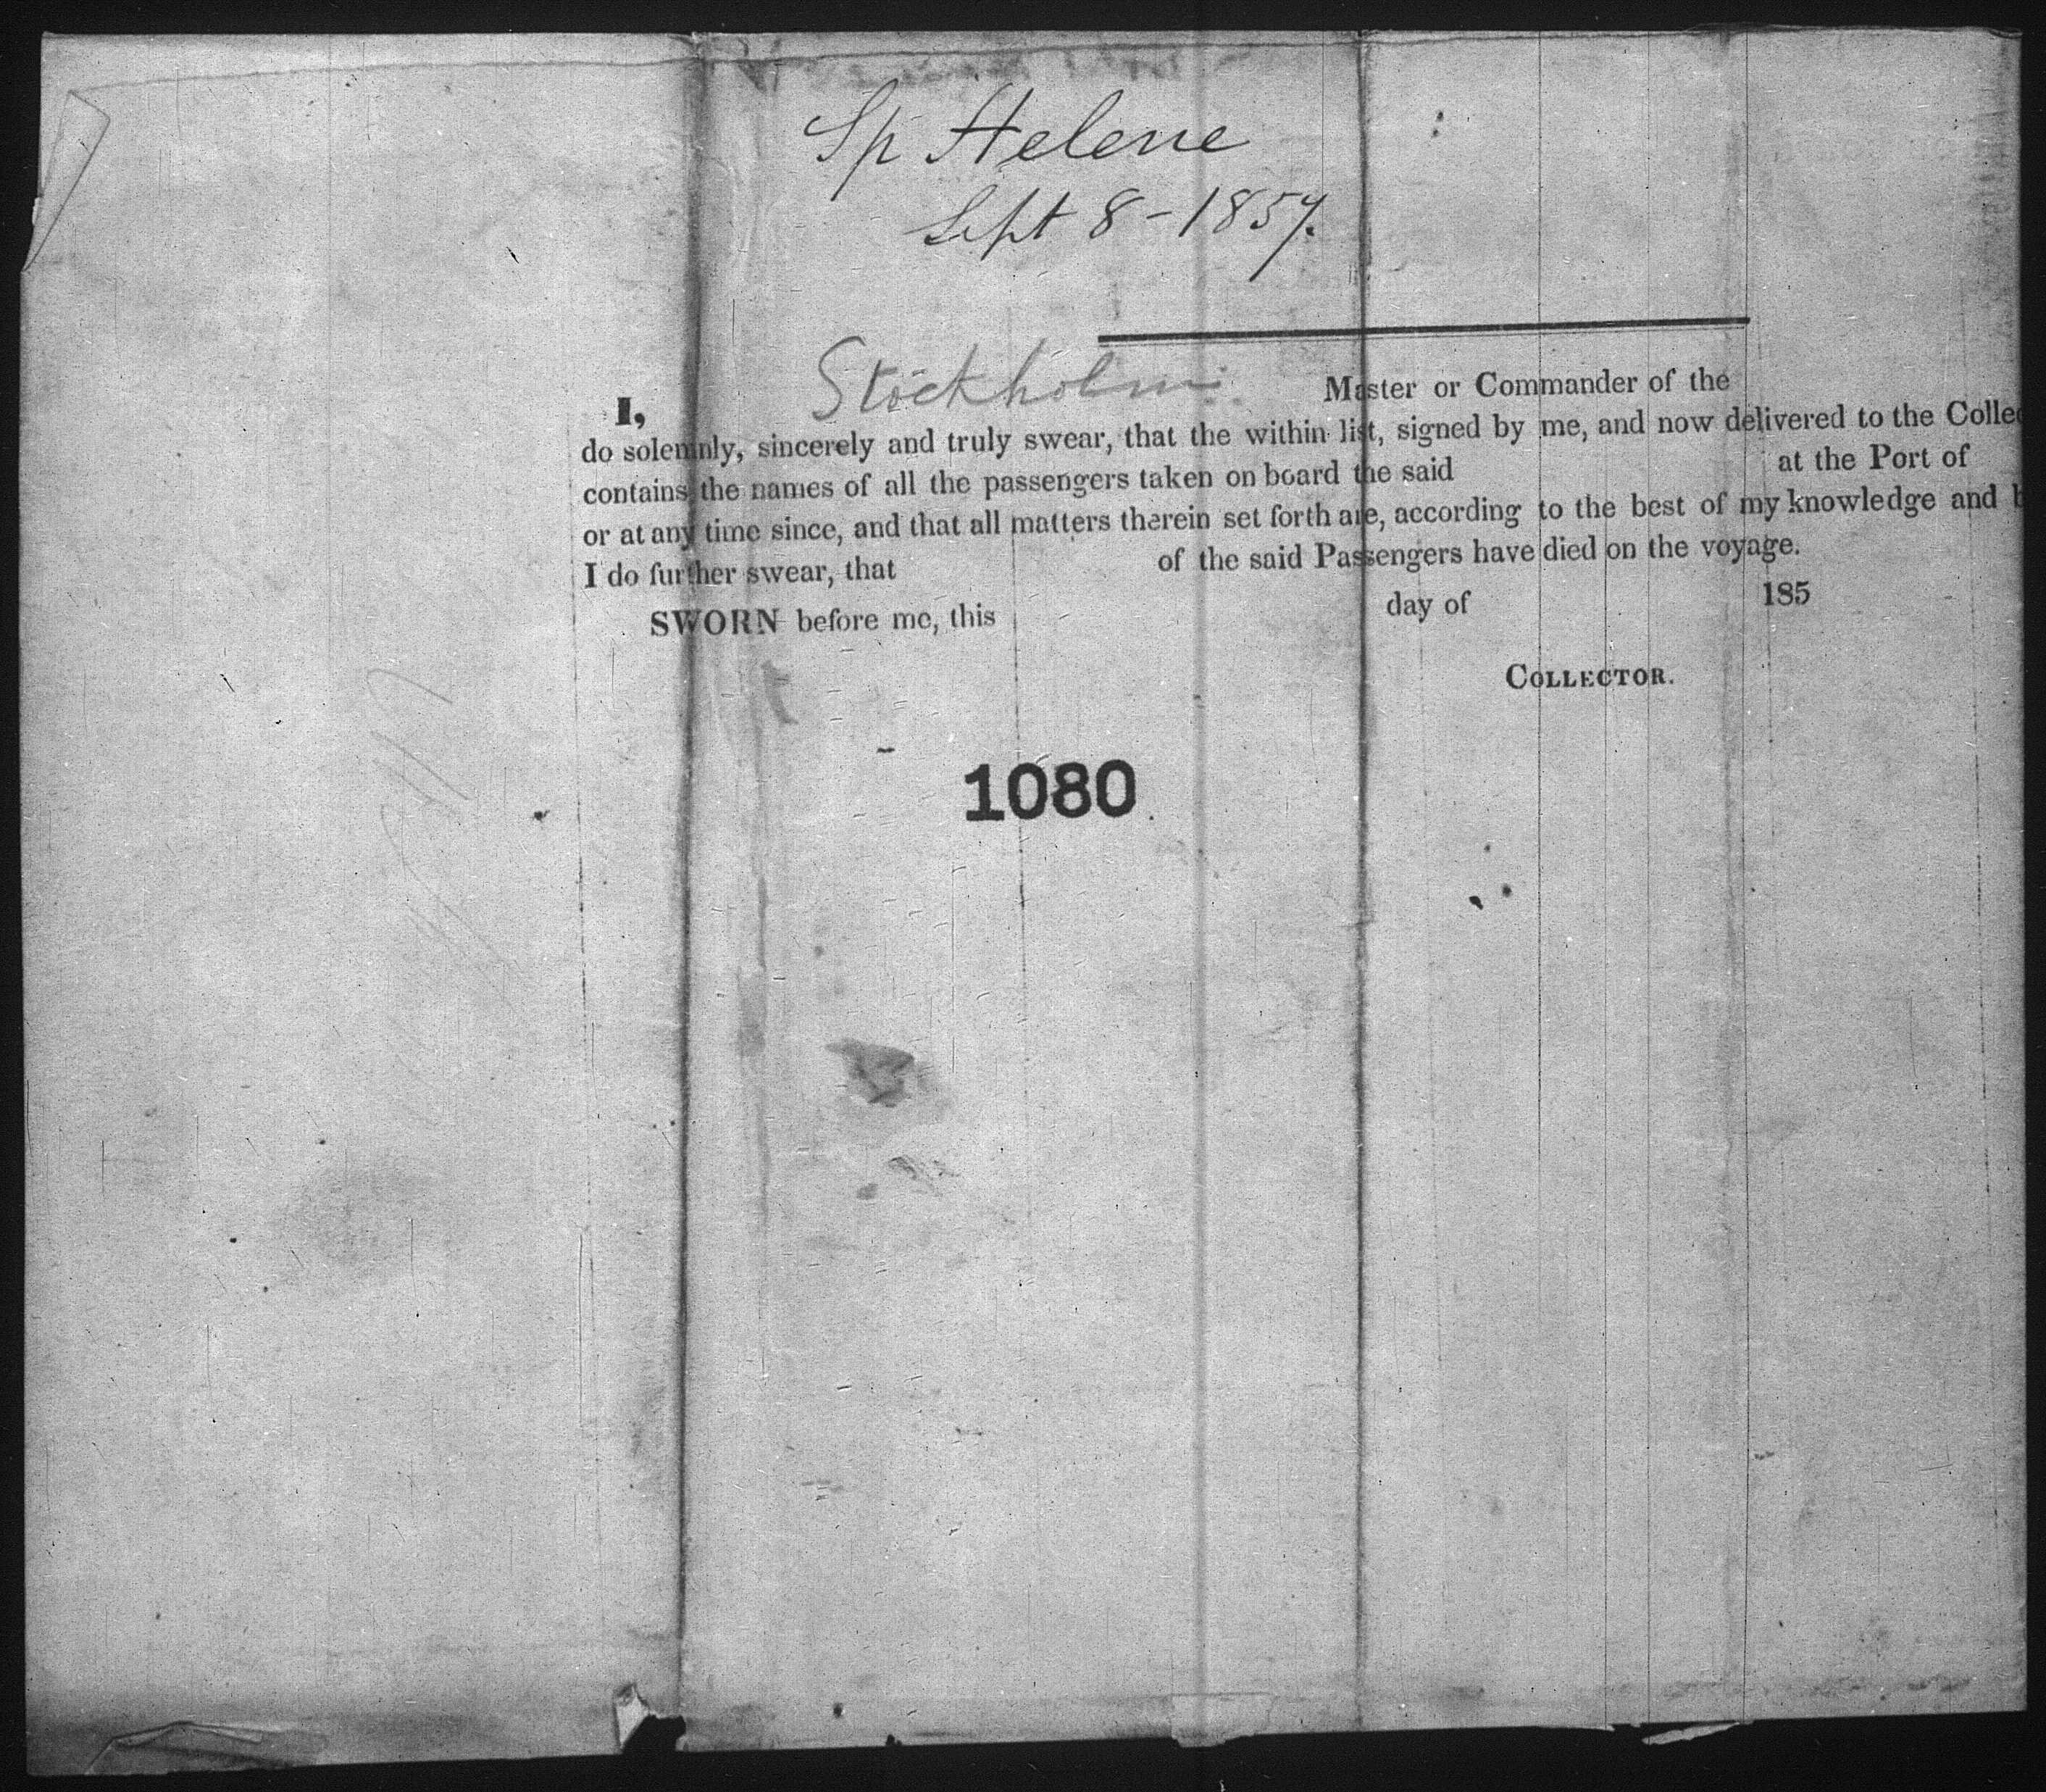 Sp Helene
Sept 8-1857.
Stockholm
I, Master or Commander of the
do solemnly, sincerely and truly swear, that the within list, signed by me, and now delivered to the Collec
contains the names of all the passengers taken on board the said at the Port of
or at any time since, and that all matters therein set forth are, according to the best of my knowledge and b
I do further swear, that of the said Passengers have died on the voyage.
SWORN before me, this day of 185
COLLECTOR.
1080